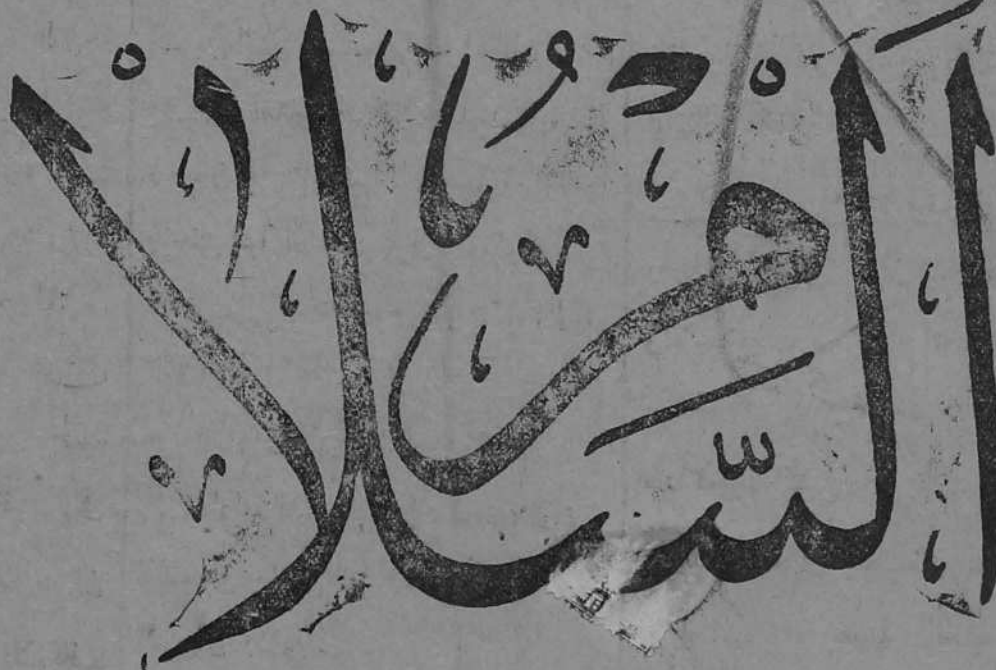 السَّلامُ